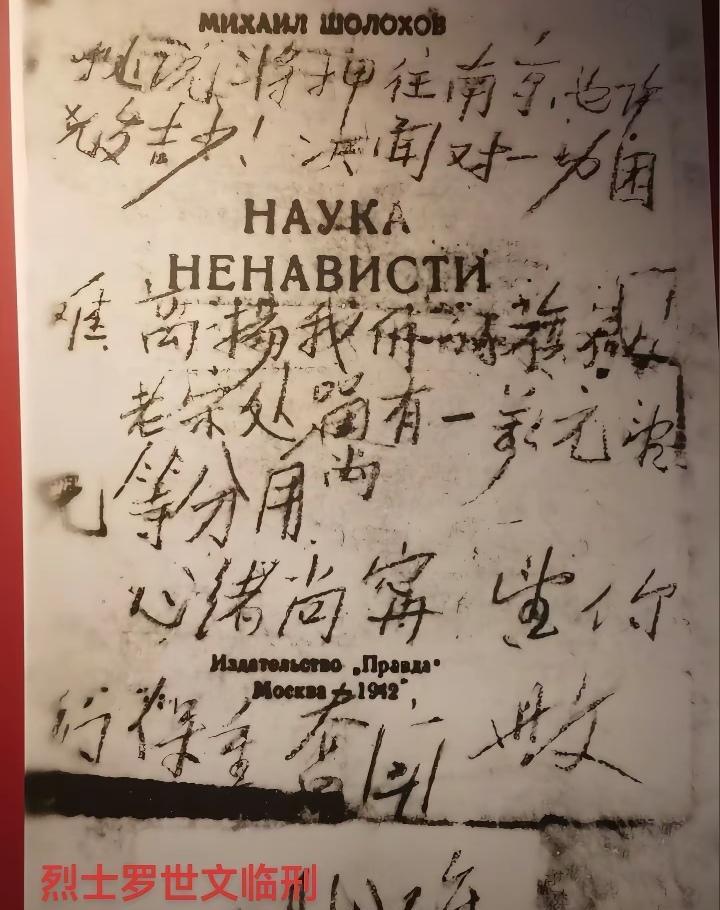 МИХАИЛ ШОЛОХОВ
据说将押往南京,也许
凶多吉少!决面对一切困
НАУКА
НЕНАВИСТИ
难高扬我们的旗帜
老宋处留有一万元望
尚
兄等分用
心绪尚宁 望你
Издательство „Правда"
Москва — 1942
们保重奋斗 世文
烈士罗世文临刑